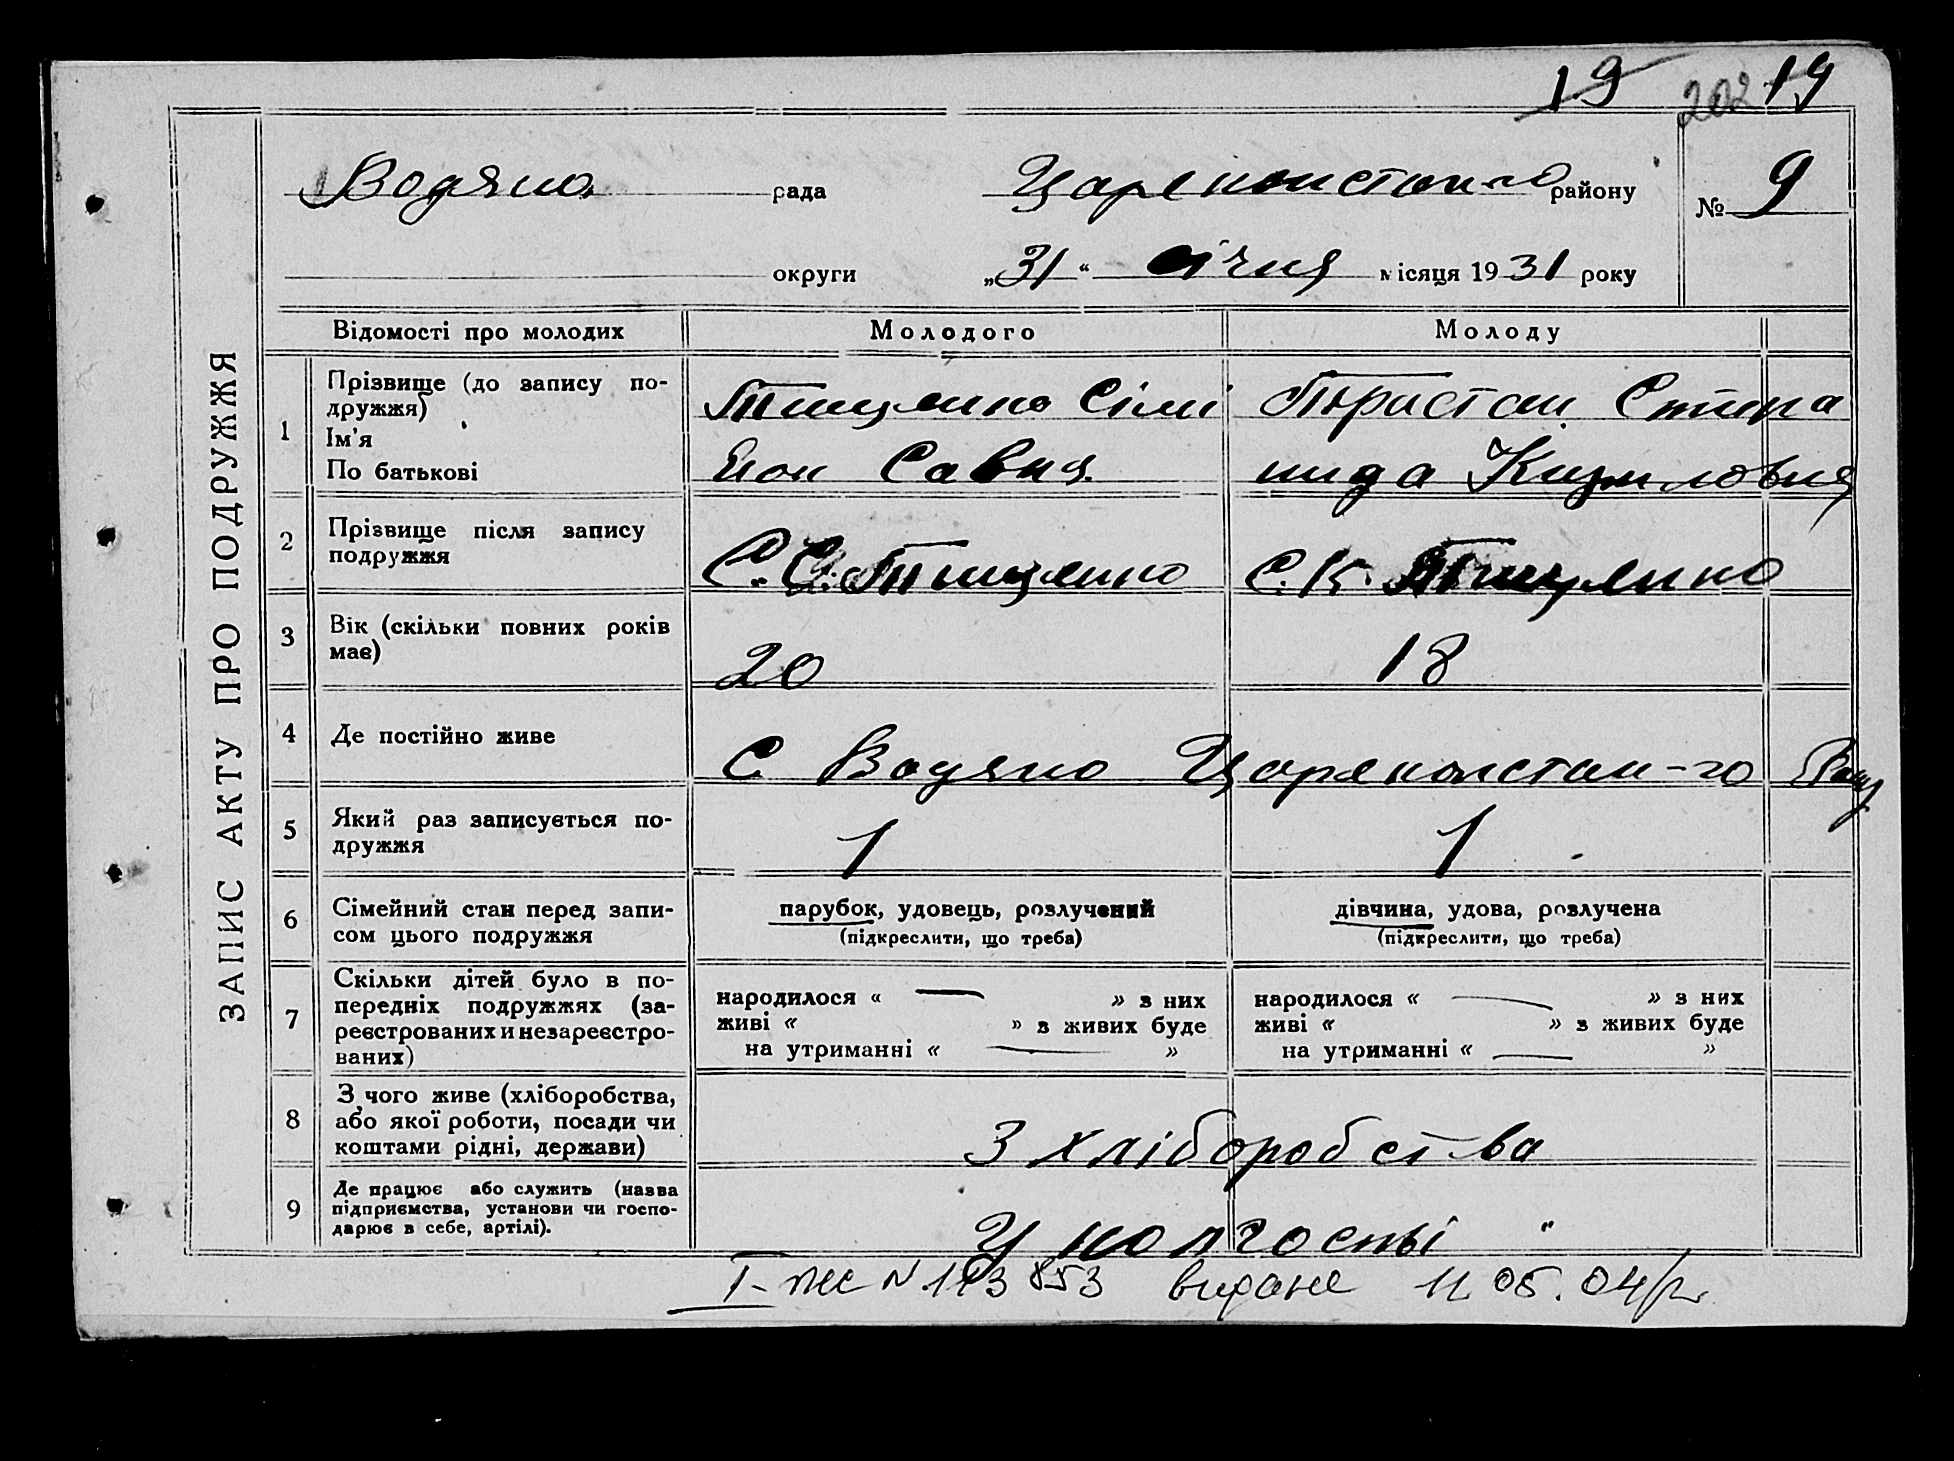 19 202 19
Водяно рада Цареконстан-го району № 9
округи „31“ січня місяця 1931 року
ЗАПИС АКТУ ПРО ПОДРУЖЖЯ
Відомості про молодих Молодого Молоду
1 Прізвище (до запису по-
дружжя)
Ім'я
По батькові
Тищенко Сімі
еон Савич
Тюристан Степа
нида Кизиловна
2 Прізвище після запису
подружжя
С. С. Тищенко С. К. Тищенко
3 Вік (скільки повних років
має)
20 18
4 Де постійно живе
С Водяно Цареконстан-го
5 Який раз записується по-
дружжя
1 1
6 Сімейний стан перед запи-
сом цього подружжя
парубок, удовець, розлучений
(підкреслити, що треба)
дівчина, удова, розлучена
(підкреслити, що треба)
7 Скільки дітей було в по-
передніх подружжях (за-
реєстрованих и незареєстро-
ваних)
народилося « — » з них
живі « » з живих буде
на утриманні « — »
народилося « — » з них
живі « » з живих буде
на утриманні « — »
8 З чого живе (хліборобства,
або якої роботи, посади чи
коштами рідні, держави)
З хліборобства
9 Де працює або служить (назва
підприємства, установи чи госпо-
дарює в себе, артілі).
У колгоспі
видане 11.05.04р.